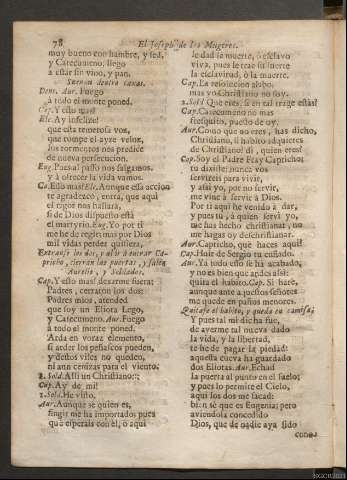 78 El Joseph de las Mugeres.
muy bueno con hambre, y sed,
y Catecumeno, llego
a estar sin vino, y pan.
Suenan dentro caxas.
Dent. Aur. Fuego
à todo el monte poned.
Cap. Y esto mas?
Ele. Ay infelize!
que esta temerosa voz,
que rompe el ayre veloz,
los tormentos nos predice
de nueva persecucion.
Eug. Pues al passo nos salgamos,
y à ofrecer la vida vamos.
Ca. Esso mas? Ele. Aunque essa accion
te agradezco, entra, que aqui
el rigor nos hallará,
si de Dios dispuesto está
el martyrio. Eug. Yo por ti
no he de regir mas que Dios
mil vidas perder quisiera.
Entranse los dos, y al ir à entrar Ca-
pricho, cierran las puertas, y salen
Aurelio, y Soldados.
Cap. Y esso mas! dexarme fuera!
Padres, cerraron los dos:
Padres mios, atended
que soy un Eliota Lego,
y Catecumeno. Aur. Fuego
à todo el monte poned.
Arda en voraz elemento,
si arder los peñascos pueden,
y destos viles no queden,
ni aun cenizas para el viento.
2. Sold. Alli un Christiano:::
Cap. Ay de mi!
1. Sold. He visto.
Aur. Aunque se quien es,
fingir me ha importado pues
que esperais con él, ò aqui
le dad la muerte, ò esclavo
viva, pues le trae su suerte
la esclavitud, ò la muerte.
Cap. En resolucion alabo,
mas yo Christiano no soy.
2. Sol. Que eres, si en tal trage estàs?
Cap. Catecumeno no mas
fresquito, puesto de oy.
Aur. Como que no eres, has dicho,
Christiano, si habito adquieres
de Christiano? di, quien eres?
Cap. Soy el Padre Fray Capricho;
tu dixiste: nunca vos
servireis para vivir,
y assi yo, por no servir,
me vine à servir à Dios.
Por ti aqui he venido à dar,
y pues tú, à quien serví yo,
me has hecho christianar, no
me hagas oy deschristianar.
Aur. Capricho, què haces aqui?
Cap. Huir de Sergio tu cuñado.
Aur. Ya todo esso se ha acabado,
y no es bien que andes assi:
quita el habito. Cap. Si haré,
aunque ante aquestos señores
me quede en paños menores.
Quitase el habito, y queda en camisa.
Y pues tal mi dicha fue,
de averme tal nueva dado
la vida, y la libertad,
te he de pagar la piedad:
aquessa cueva ha guardado
dos Eliotas. Aur. Echad
la puerta al punto en el suelo;
y pues lo permite el Cielo,
aqui los dos me sacad:
bien sè que es Eugenia; pero
aviendola concedido
Dios, que de nadie aya sido
cono-